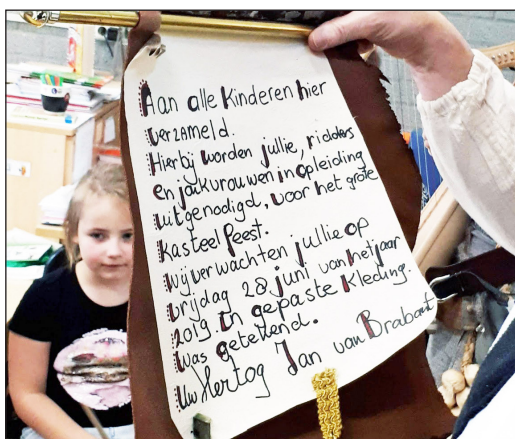 Aan alle Kinderen hier
verzameld.
Hierbij worden jullie, ridders
en jonkvrouwen in opleiding
uitgenodigd, voor het grote
kasteel feest.
Wij verwachten jullie op
vrijdag 28 juni van het jaar
2019. In gepaste Kleding.
Was getekend.
Uw Hertog Jan van Brabant